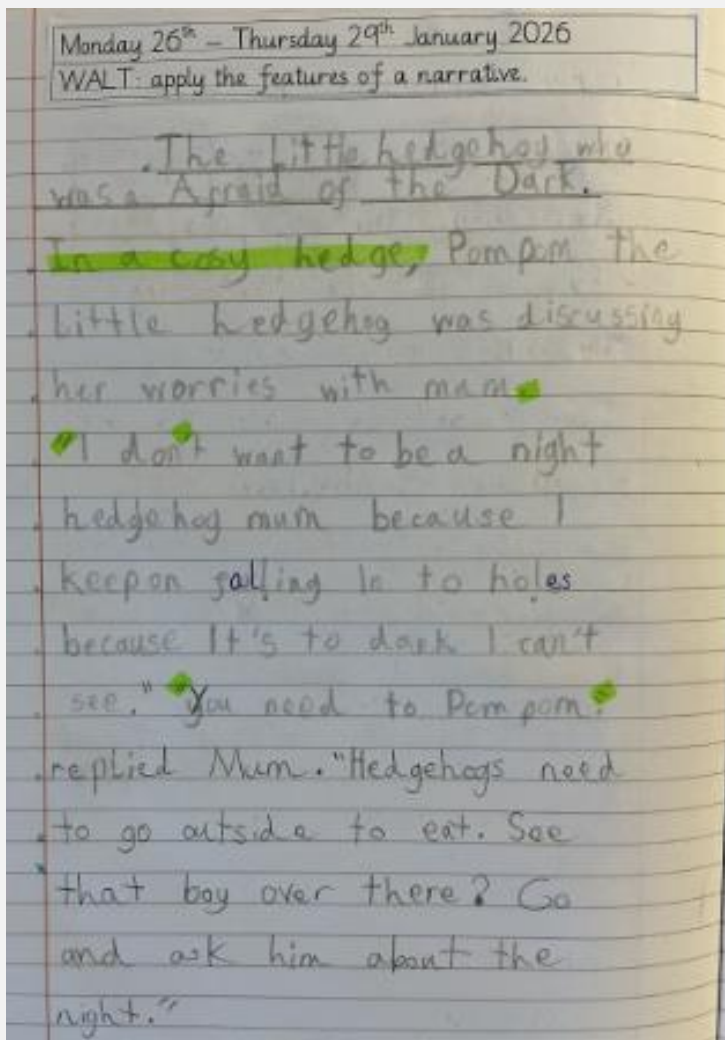 Monday 26th – Thursday 29th January 2026
WALT: apply the features of a narrative.
The Little hedgehog who
was a Afraid of the Dark.
In a cosy hedge, Pompom the
Little hedgehog was discussing
her worries with mum.
"I don't want to be a night
hedgehog mum because I
keep on falling in to holes
because It's to dark I can't
see." "You need to Pompom."
replied Mum. "Hedgehogs need
to go outside to eat. See
that boy over there? Go
and ask him about the
night."